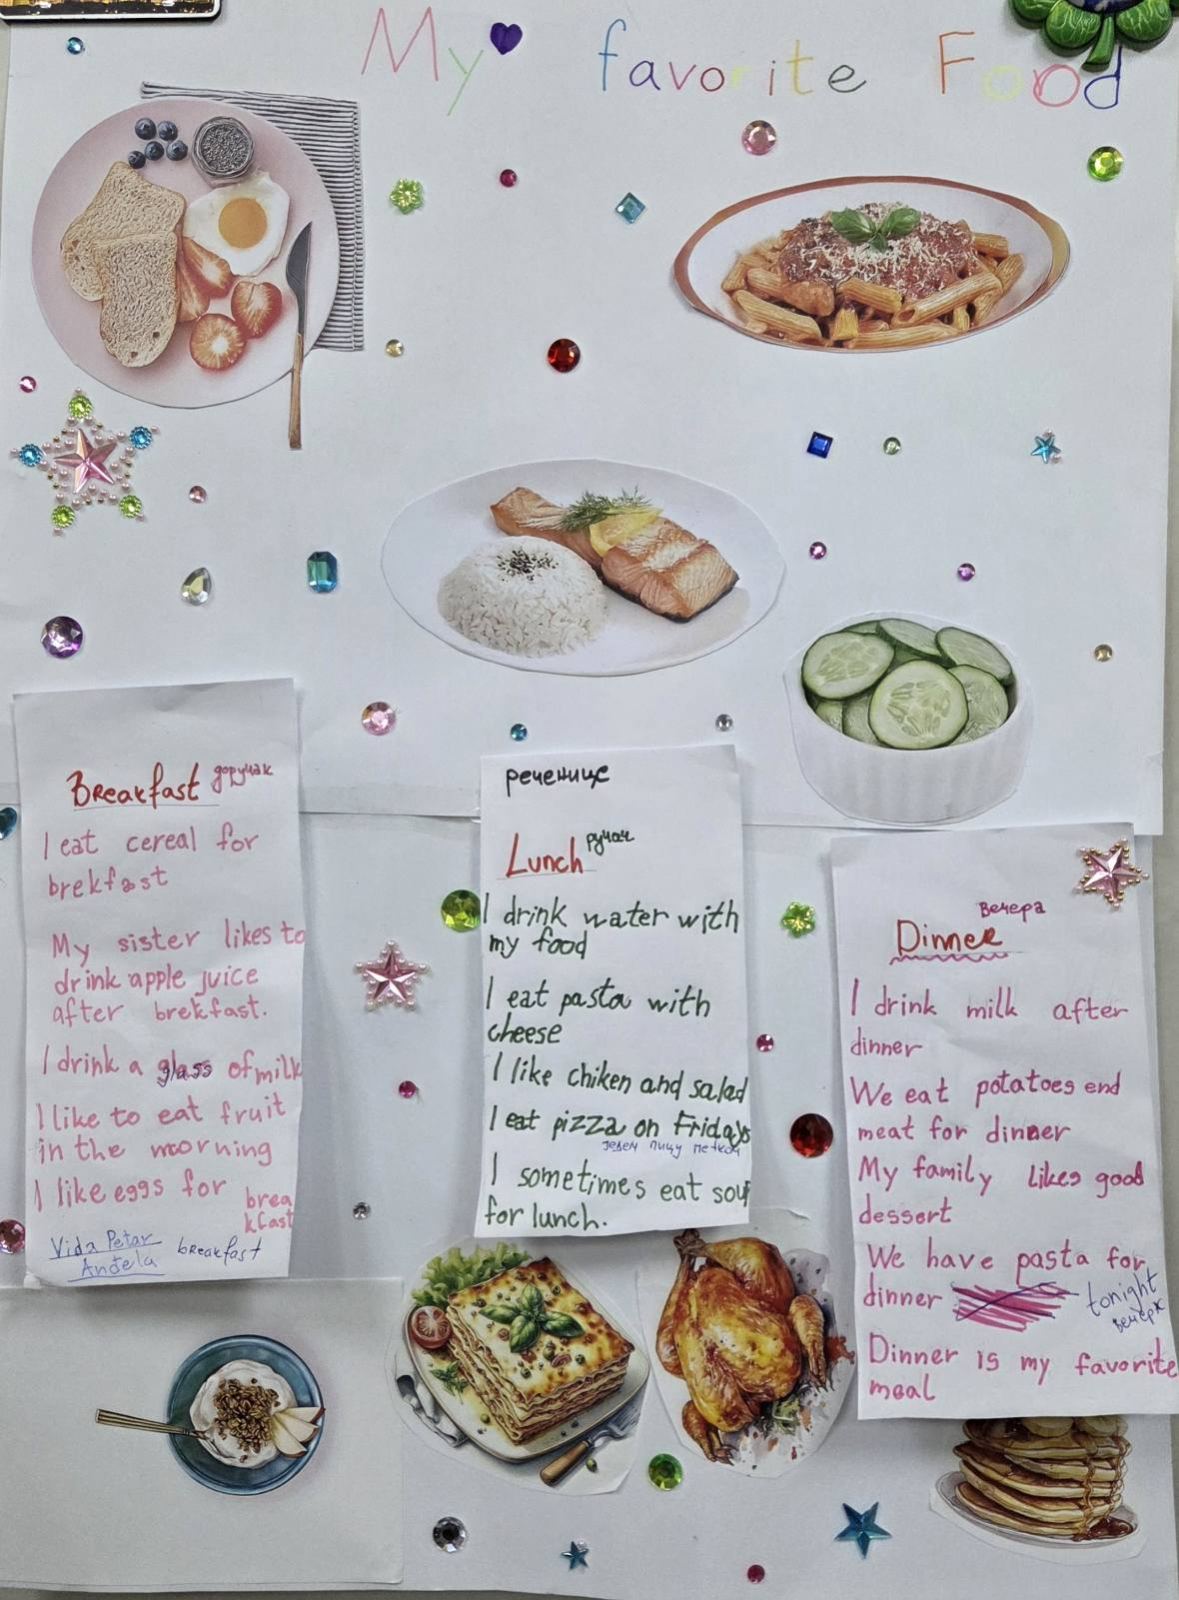 My favorite Food
Breakfast доручак
I eat cereal for
brekfast
My sister likes to
drink apple juice
after brekfast.
I drink a glass of milk
I like to eat fruit
in the morning
I like eggs for brea
kfast
Vida Petar
Anđela breakfast
реченице
Lunch ручак
I drink water with
my food
I eat pasta with
cheese
I like chiken and salad
I eat pizza on Fridays
једем пицу петком
I sometimes eat soup
for lunch.
Dinner вечера
I drink milk after
dinner
We eat potatoes end
meat for dinner
My family likes good
dessert
We have pasta for
dinner tonight
Dinner is my favorite
meal